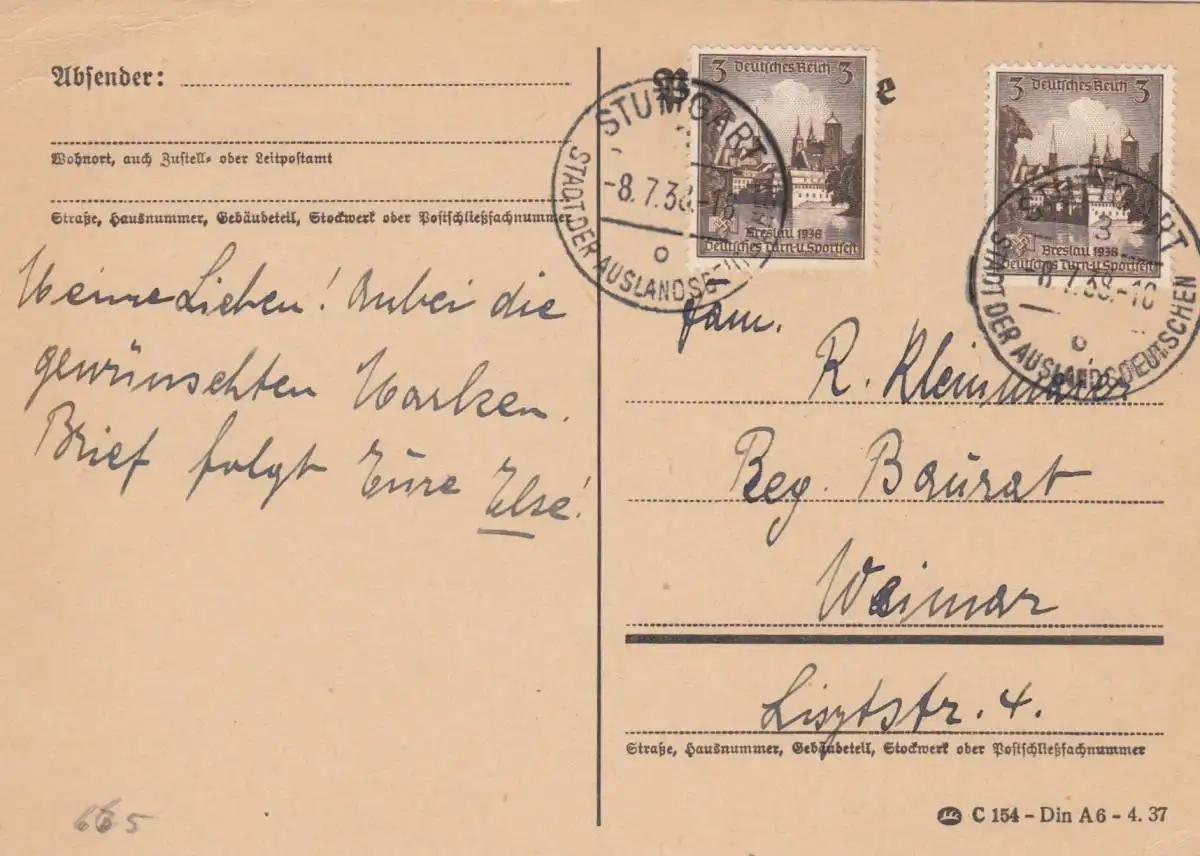 Absender:
Wohnort, auch Zustell- oder Leitpostamt
Straße, Hausnummer, Gebäudeteil, Stockwerk oder Postschließfachnummer
Meine Lieben! Anbei die
gewünschten Marken.
Brief folgt Eure Else!
665
3 Deutsches Reich 3
Breslau 1938
Deutsches Turn- u. Sportfest
STUTTGART
-8.7.38.-18
o
STADT DER AUSLANDSDEUTSCHEN
3 Deutsches Reich 3
Breslau 1938
Deutsches Turn- u. Sportfest
STUTTGART
3
8.7.38.-18
o
STADT DER AUSLANDSDEUTSCHEN
Fam.
R. Kleinmaier
Reg. Baurat
Weimar
Lisztstr. 4.
Straße, Hausnummer, Gebäudeteil, Stockwerk oder Postschließfachnummer
C 154 - Din A 6 - 4. 37